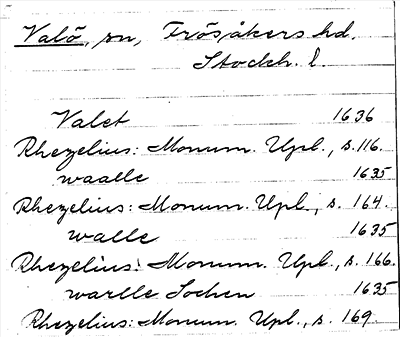 Valö, sn, Frösåkers hd.
Stockh. l.
Valet 1636
Rhezelius: Monum. Upl., s. 116.
waalle 1635
Rhezelius: Monum. Upl., s. 164.
walle 1635
Rhezelius: Monum. Upl., s. 166.
warlle Sochen 1635
Rhezelius: Monum. Upl., s. 169.